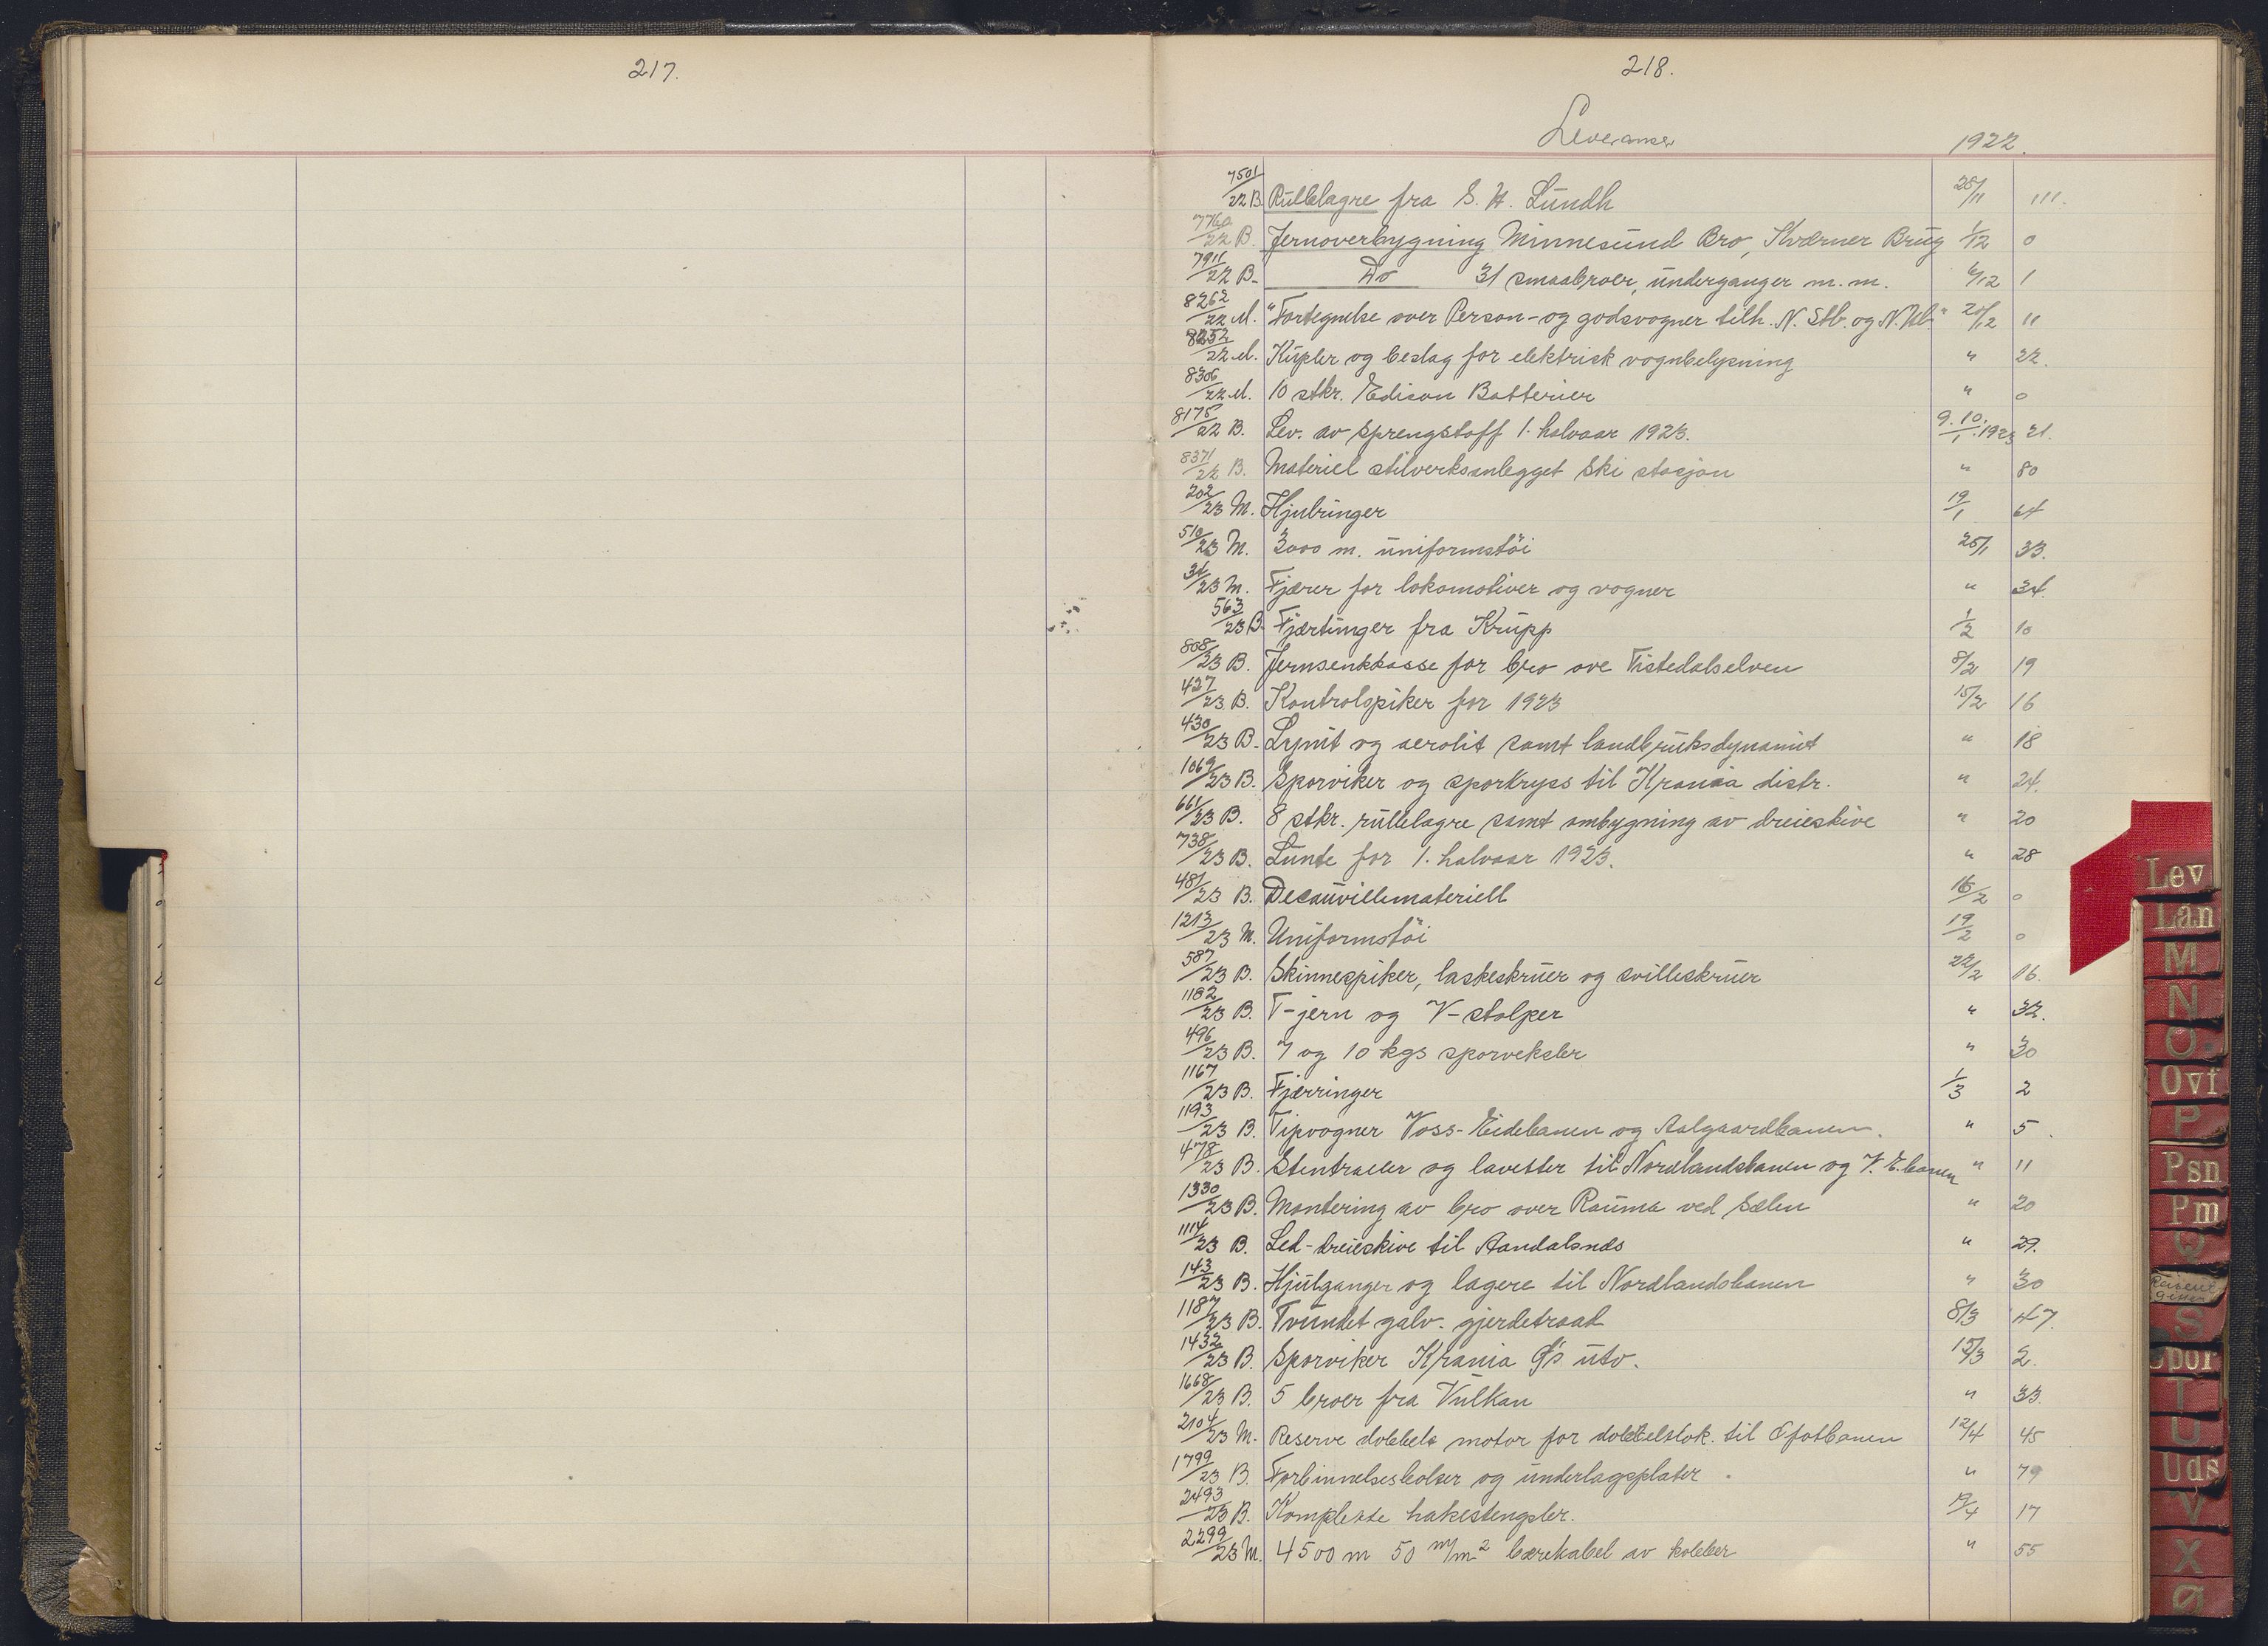 217.
218.
Leveranser 1922.
7501/22 B. Rullelagre fra S. H. Lundh 28/11 111.
7760/22 B. Jernoverbygning Minnesund Bro, Kværner Brug 1/12 0
7911/22 B. Do 31 smaabroer, underganger m. m. 6/12 1
8262/22 M. "Fortegnelse over Person- og godsvogner tilh. N. Stb. og N. Hb." 21/12 11
8252/22 M. Kupler og beslag for elektrisk vognbelysning " 22.
8306/22 M. 10 stkr. Edison Batterier " 0
8175/22 B. Lev. av sprengstoff 1. halvaar 1923. 9.10./1.1923 21.
8371/22 B. Materiel stilverksanlegget Ski stasjon " 80
202/23 M. Hjulringer 19/1 64
510/23 M. 3000 m. uniformstöi 25/1 33.
31/23 M. Fjærer for lokomotiver og vogner " 34.
563/23 B. Fjærringer fra Krupp 1/2 10
808/23 B. Jernsenkkasse for bro ove Tistedalselven 8/2 19
427/23 B. Kontrolspiker for 1923 15/2 16
430/23 B. Lynit og aerolit samt landbruksdynamit " 18
1069/23 B. Sporviker og sporkryss til Krania distr. " 24.
661/23 B. 8 stkr. rullelagre samt ombygning av dreieskive " 20
738/23 B. Lunte for 1. halvaar 1923. " 28
481/23 B. Decauvillemateriell 16/2 0
1213/23 M. Uniformstöi 19/2 0
587/23 B. Skinnespiker, laskeskruer og svilleskruer 22/2 16.
1182/23 B. T-jern og V-stolper " 32.
496/23 B. 7 og 10 kgs sporveksler " 30
1167/23 B. Fjærringer 1/3 2
1193/23 B. Tipvogner Voss-Eidebanen og Aalgaardbanen. " 5.
478/23 B. Stentraller og lavetter til Nordlandsbanen og V. E. banen " 11
1330/23 B. Montering av bro over Rauma ved Sælen " 20
1114/23 B. Led-dreieskive til Aandalsnæs " 29.
143/23 B. Hjulganger og lagere til Nordlandsbanen " 30
1187/23 B. Tvundet galv. gjerdetraad 8/3 47.
1432/23 B. Sporviker Krania Ø's utv. 15/3 2.
1668/23 B. 5 broer fra Vulkan " 33.
2104/23 M. Reserve dobbelt motor for dobbeltlok. til Ofotbanen 12/4 45
1799/23 B. Forbinnelsesbolser og underlagsplater. " 79
2493/23 B. Komplette hakestengsler. 19/4 17
2299/23 M. 4500 m 50 m/m² bærekabel av kobber " 55
Lev
Lan
M
N
O
Ovf
P
Psn
Pm
Q
S
Spor
T
U
Uds
V
X
Ø